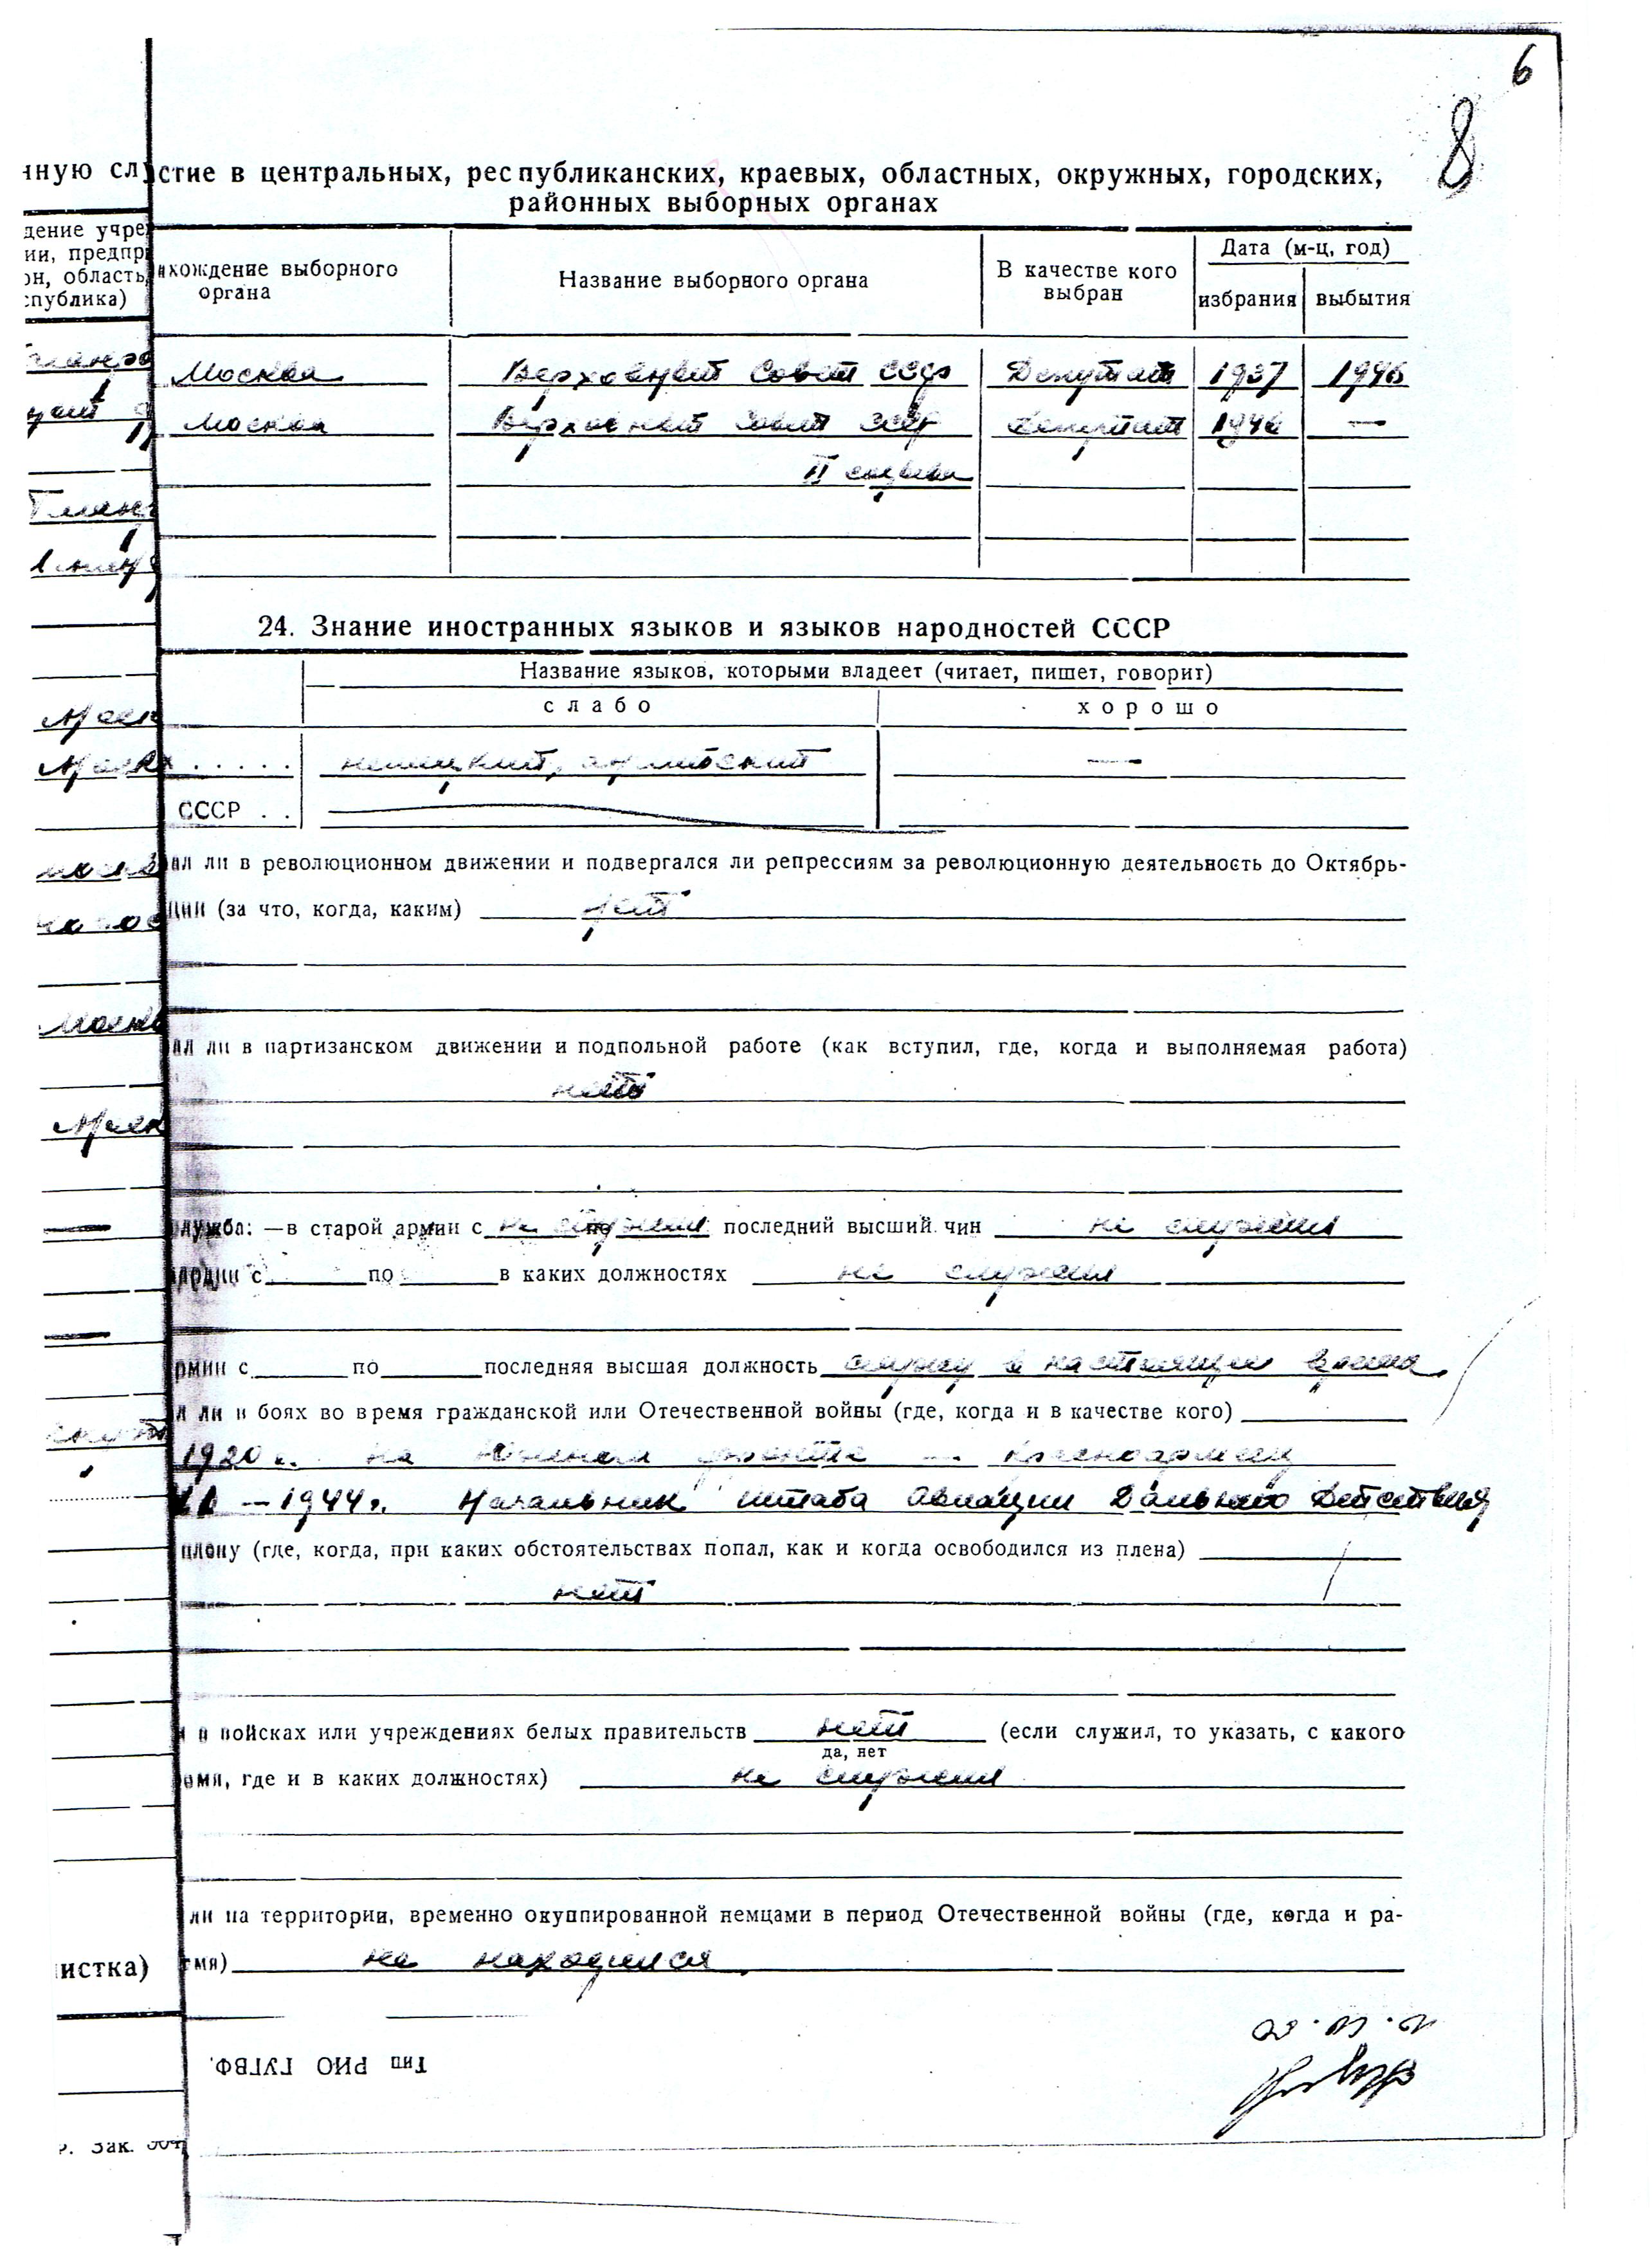 6
8
нную слу стие в центральных, республиканских, краевых, областных, окружных, городских,
районных выборных органах
дение учре
ии, предпр
он, область,
спублика)
нахождение выборного
органа
Название выборного органа
В качестве кого
выбран
Дата (м-ц, год)
избрания
выбытия
Москва Верховный Совет СССР Депутат 1937 1946
Москва Верховный Совет СССР Депутат 1946 —
II созыва
24. Знание иностранных языков и языков народностей СССР
Название языков, которыми владеет (читает, пишет, говорит)
слабо хорошо
. . . . . немецкий, английский —
СССР . .
ал ли в революционном движении и подвергался ли репрессиям за революционную деятельность до Октябрь-
ции (за что, когда, каким) нет
Москв
ал ли в партизанском движении и подпольной работе (как вступил, где, когда и выполняемая работа)
нет
служба: — в старой армии с не служил по последний высший чин не служил
с по в каких должностях не служил
рмии с по последняя высшая должность служу в настоящее время
л ли в боях во время гражданской или Отечественной войны (где, когда и в качестве кого)
1920 г. на Южном фронте — Красноармеец
— 1944 г. Начальник штаба Авиации Дальнего Действия
плену (где, когда, при каких обстоятельствах попал, как и когда освободился из плена)
нет
в войсках или учреждениях белых правительств нет (если служил, то указать, с какого
да, нет
емя, где и в каких должностях) не служил
ли на территории, временно окуппированной немцами в период Отечественной войны (где, когда и ра-
истка)
мя) не находился
Тип РИО ГУГВФ.
Р. Зак.